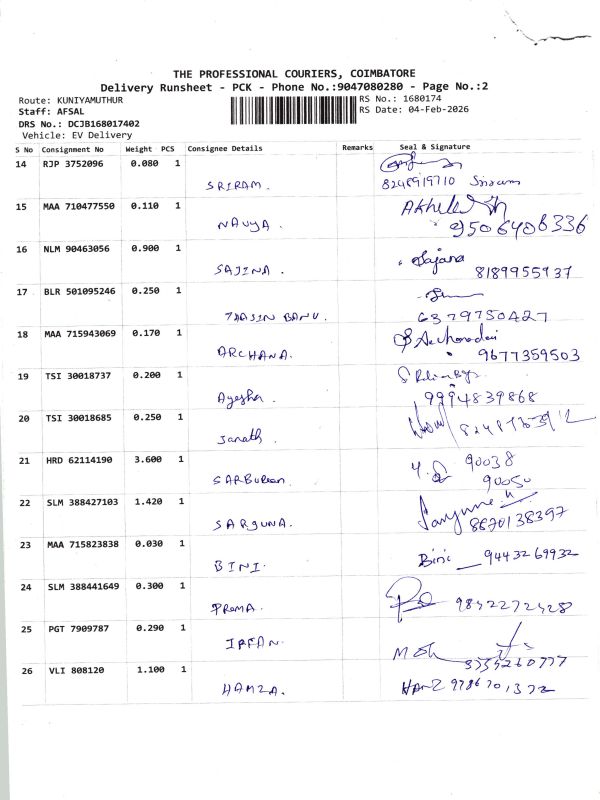 THE PROFESSIONAL COURIERS, COIMBATORE
Delivery Runsheet - PCK - Phone No.:9047080280 - Page No.:2
Route: KUNIYAMUTHUR
RS No.: 1680174
Staff: AFSAL
RS Date: 04-Feb-2026
DRS No.: DCJB168017402
Vehicle: EV Delivery
S No Consignment No Weight PCS Consignee Details Remarks Seal & Signature
14 RJP 3752096 0.080 1
SRIRAM. 8248919710 Sriram
15 MAA 710477550 0.110 1
NAVYA. 9506408336
16 NLM 90463056 0.900 1 Sajana
SAJINA. 8189955937
17 BLR 501095246 0.250 1
THASIN BANU. 6379750427
18 MAA 715943069 0.170 1
ARCHANA. 9677359503
19 TSI 30018737 0.200 1
Ayesha. 9994839868
20 TSI 30018685 0.250 1
Janath.
21 HRD 62114190 3.600 1 90038
90050
22 SLM 388427103 1.420 1
SARGUNA. 8870138397
23 MAA 715823838 0.030 1
BINI. Bini 9443269932
24 SLM 388441649 0.300 1
PROMA. 9842272428
25 PGT 7909787 0.290 1
IRFAN.
26 VLI 808120 1.100 1
HAMZA. 9786701372